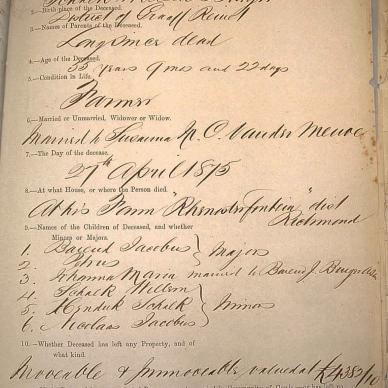 2.—Birth place of the Deceased.
District of Graaff Reinet
3.—Names of Parents of the Deceased.
Long since dead
4.—Age of the Deceased.
55 years 9 mos and 22 days
5.—Condition in Life.
Farmer
6.—Married or Unmarried, Widower or Widow.
Married to Susanna M. C. Vander Merwe
7.—The Day of the decease.
27th April 1875
8.—At what House, or where the Person died.
At his Farm "Rhenosterfontein" dist
Richmond
9.—Names of the Children of Deceased, and whether
Minors or Majors.
1. Barend Jacobus
2. Petrus
Majors
3. Johanna Maria married to Barend J.
4. Schalk Willem
5. Hendrik Schalk
6. Nicolaas Jacobus
Minors
10.—Whether Deceased has left any Property, and of
what kind.
Moveable & immoveable valued at